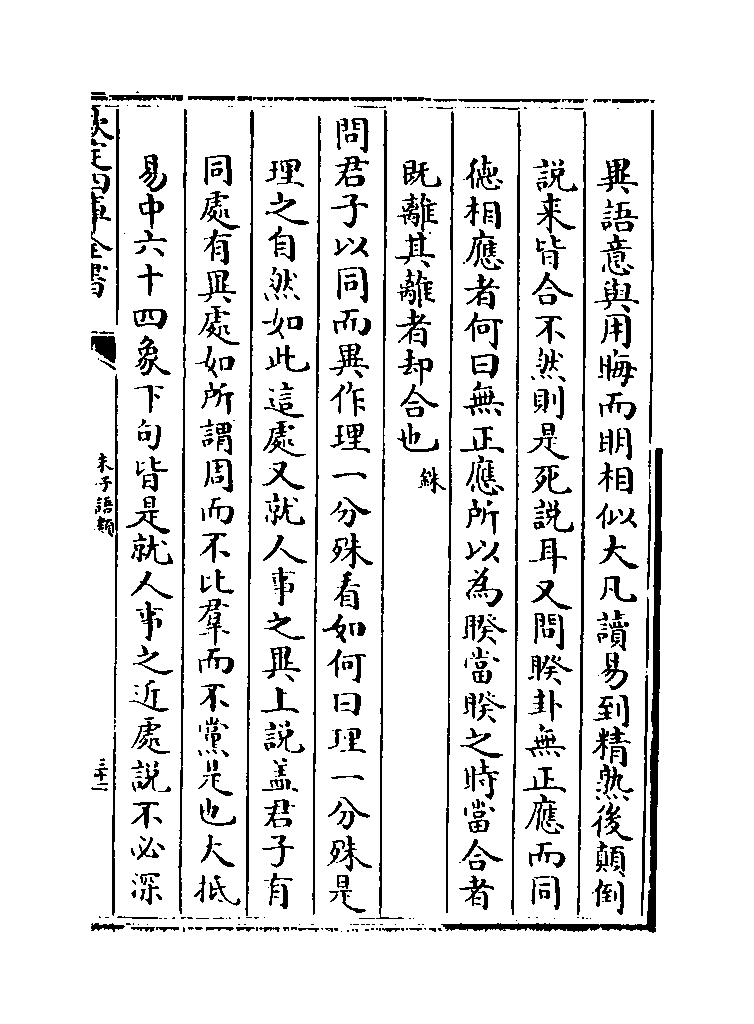 異語意與用晦而明相似大凡讀易到精熟後顛倒
説来皆合不然則是死説耳又問睽卦無正應而同
徳相應者何曰無正應所以為睽當睽之時當合者
既離其離者却合也銖
問君子以同而異作理一分殊看如何曰理一分殊是
理之自然如此這處又就人事之異上説盖君子有
同處有異處如所謂周而不比羣而不黨是也大抵
易中六十四象下句皆是就人事之近處説不必深
欽定四庫全書
朱子語類
三十二